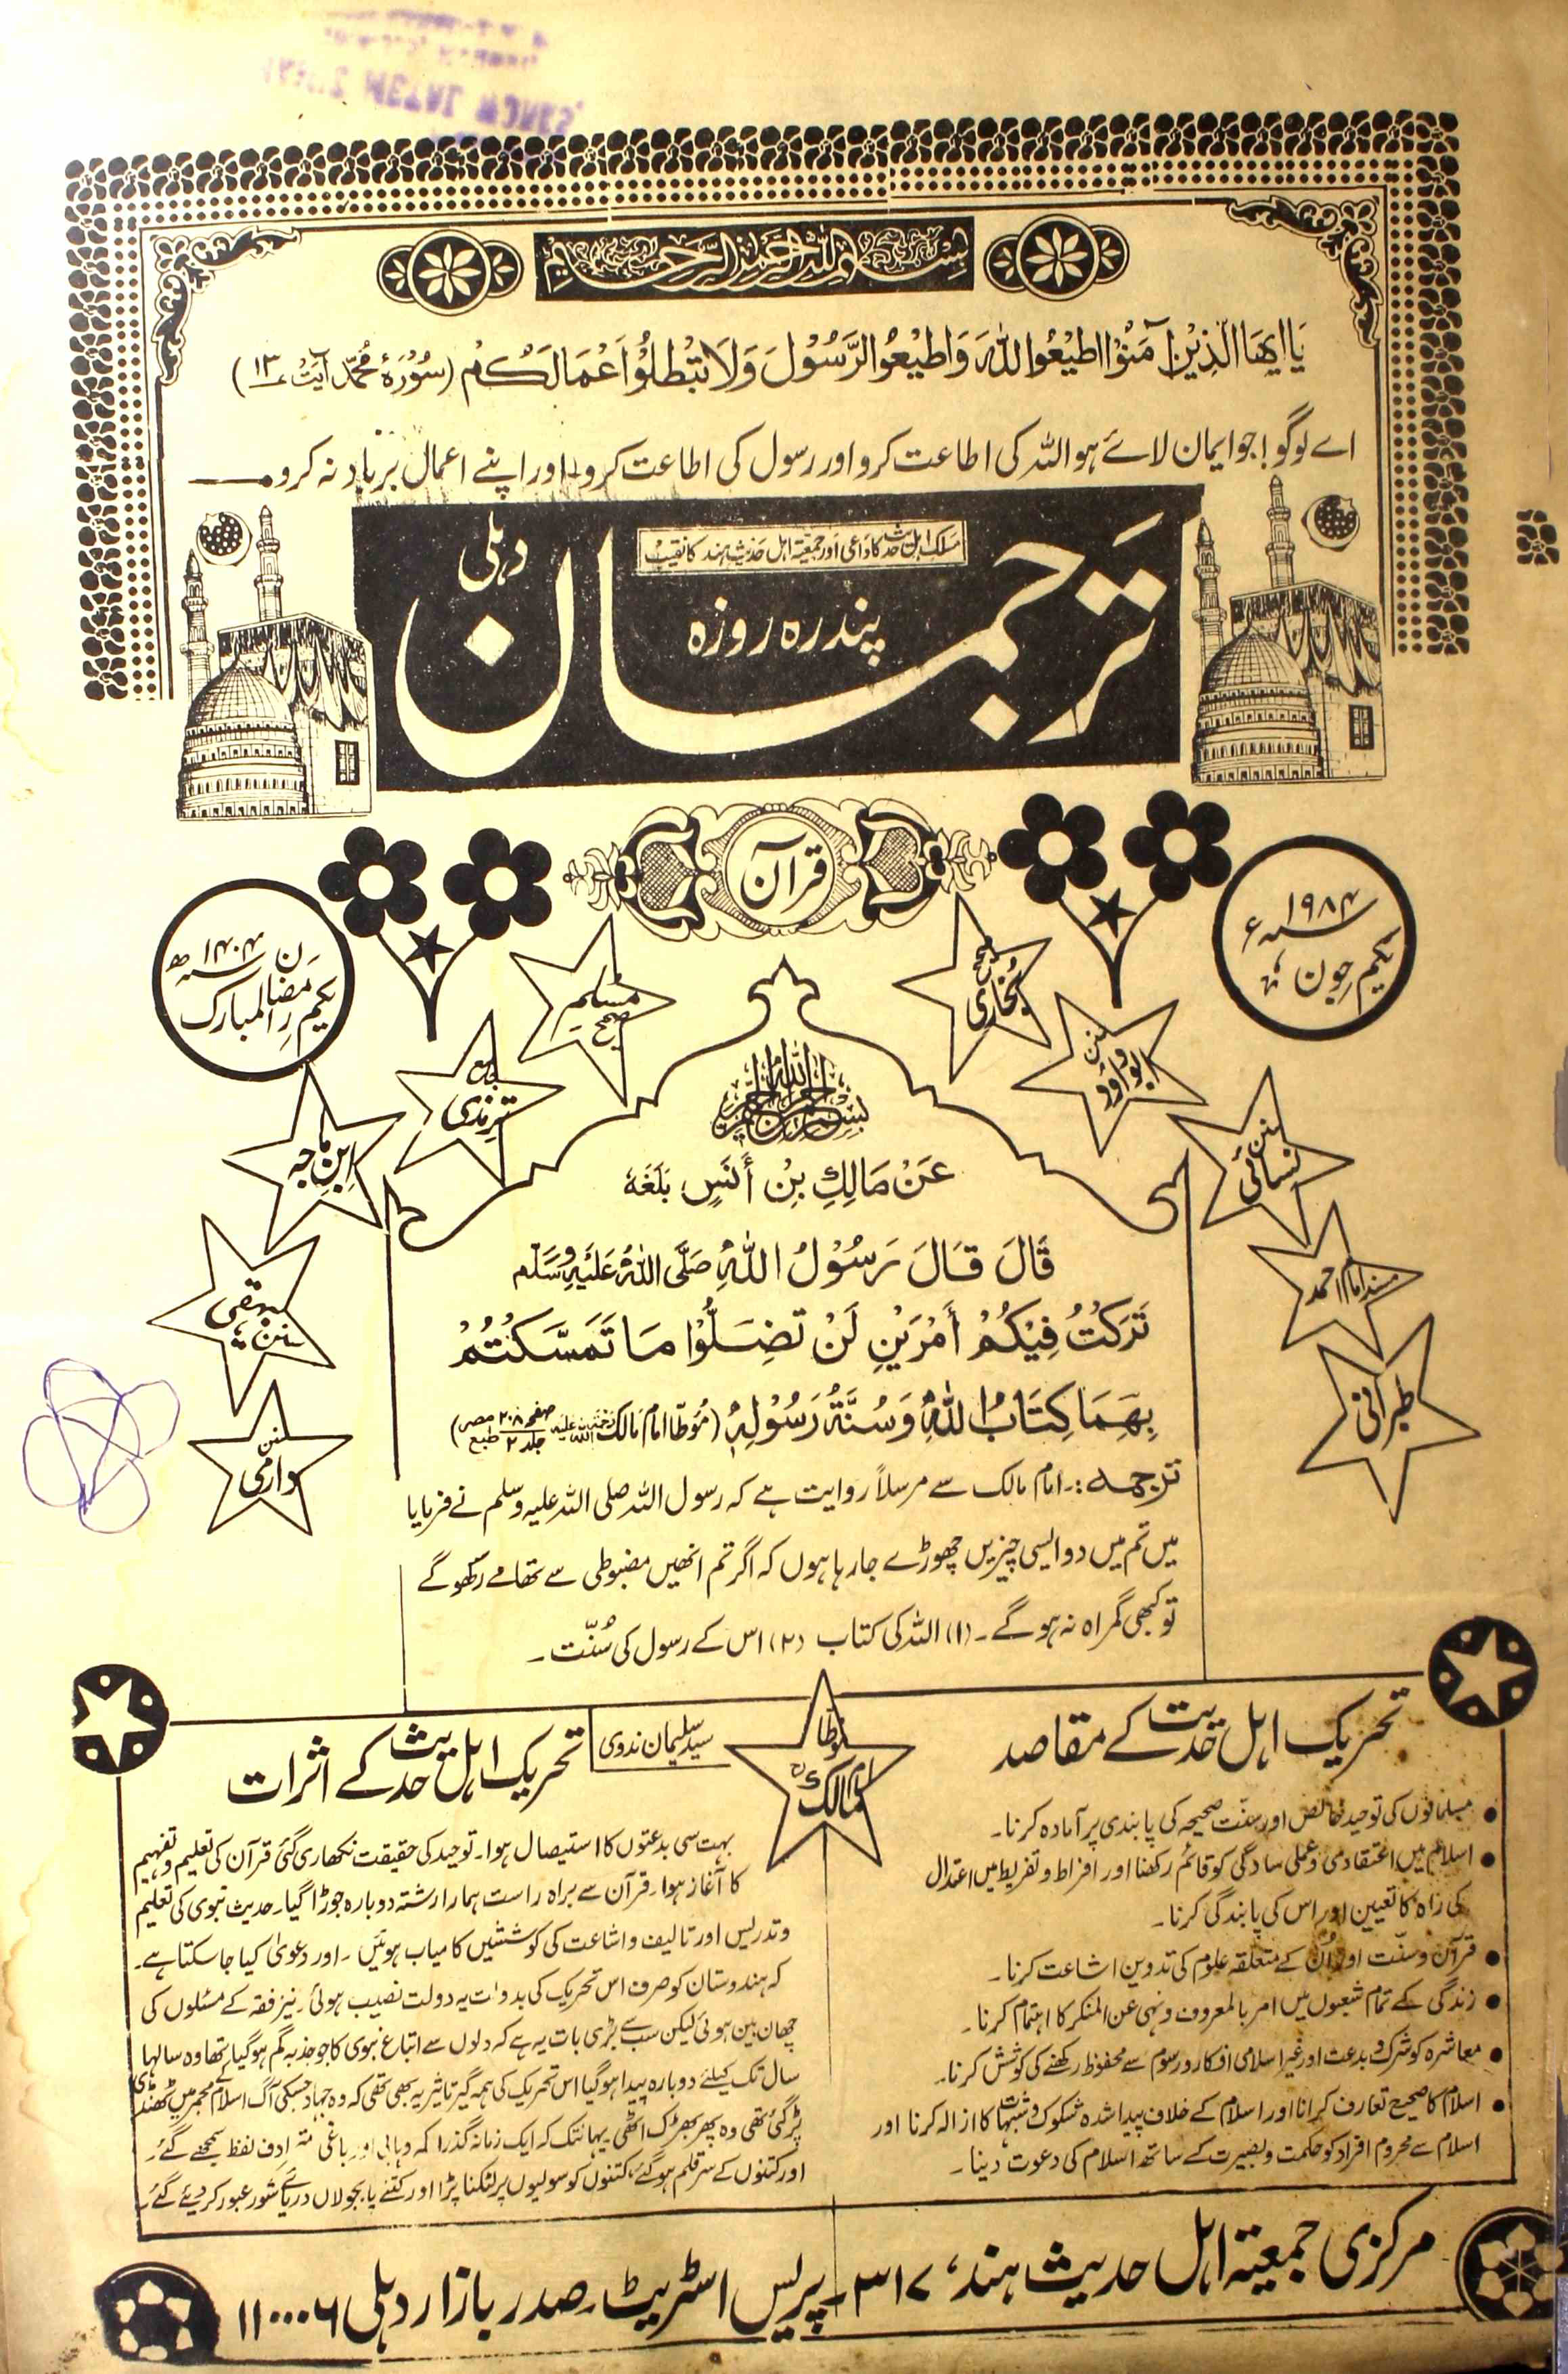 بسم الله الرحمن الرحيم
يَا اَيُّهَا الَّذِيْنَ آمَنُوْا اطِيْعُوا اللّٰهَ وَاطِيْعُوا الرَّسُوْلَ وَلَا تُبْطِلُوْا اَعْمَالَكُمْ (سُوْرَۂ مُحَمَّد آیت ۱۳)
اے لوگو! جو ایمان لائے ہو اللہ کی اطاعت کرو اور رسول کی اطاعت کرو اور اپنے اعمال برباد نہ کرو
مسلک اہل حدیث کا داعی اور جمعیۃ اہل حدیث ہند کا نقیب
ترجمان
دہلی
پندرہ روزہ
قرآن
۱۹۸۴ء
یکم جون
۱۴۰۴ھ
یکم رمضان المبارک
صحیح بخاری
صحیح مسلم
سنن ابو داؤد
جامع ترمذی
سنن نسائی
ابن ماجہ
مسند امام احمد
سنن بیہقی
طبرانی
سنن دارمی
بسم الله الرحمن الرحيم
عَنْ مَالِكِ بِنْ أَنَسٍ بَلَغَهٗ
قَالَ قَالَ رَسُوْلُ اللّٰهِ صَلَّى اللّٰهُ عَلَيْهِ وَسَلَّم
تَرَكْتُ فِيْكُمْ أَمْرَيْنِ لَنْ تَضِلُّوْا مَا تَمَسَّكْتُمْ
بِهِمَا كِتَابُ اللّٰهِ وَسُنَّةُ رَسُوْلِهٖ (مُوَطّا امام مالک رحمۃ اللہ علیہ صفحہ ۲۰۸ جلد ۲ طبع مصر)
ترجمہ:۔ امام مالک سے مرسلاً روایت ہے کہ رسول اللہ صلی اللہ علیہ وسلم نے فرمایا
میں تم میں دو ایسی چیزیں چھوڑے جا رہا ہوں کہ اگر تم انھیں مضبوطی سے تھامے رکھو گے
تو کبھی گمراہ نہ ہو گے۔ (۱) اللہ کی کتاب (۲) اس کے رسول کی سُنّت۔
موطا امام مالک
تحریک اہل حدیث کے مقاصد
• مسلمانوں کی توحید خالص اور سنّت صحیحہ کی پابندی پر آمادہ کرنا۔
• اسلام میں اعتقادی و عملی سادگی کو قائم رکھنا اور افراط و تفریط میں اعتدال
کی راہ کا تعیین اور اس کی پابندگی کرنا۔
• قرآن و سنّت اور اُن کے متعلقہ علوم کی تدوین اشاعت کرنا۔
• زندگی کے تمام شعبوں میں امر بالمعروف و نہی عن المنکر کا اہتمام کرنا۔
• معاشرہ کو شرک و بدعت اور غیر اسلامی افکار و رسوم سے محفوظ رکھنے کی کوشش کرنا۔
• اسلام کا صحیح تعارف کرانا اور اسلام کے خلاف پیدا شدہ شکوک و شبہات کا ازالہ کرنا اور
اسلام سے محروم افراد کو حکمت و بصیرت کے ساتھ اسلام کی دعوت دینا۔
تحریک اہل حدیث کے اثرات
سید سلیمان ندوی
بہت سی بدعتوں کا استیصال ہوا۔ توحید کی حقیقت نکھاری گئی قرآن کی تعلیم و تفہیم
کا آغاز ہوا۔ قرآن سے براہ راست ہمارا رشتہ دوبارہ جوڑا گیا۔ حدیث نبوی کی تعلیم
و تدریس اور تالیف و اشاعت کی کوششیں کامیاب ہوئیں۔ اور دعویٰ کیا جا سکتا ہے۔
کہ ہندوستان کو صرف اس تحریک کی بدولت یہ دولت نصیب ہوئی۔ نیز فقہ کے مسئلوں کی
چھان بین ہوئی لیکن سب سے بڑی بات یہ ہے کہ دلوں سے اتباع نبوی کا جو جذبہ گم ہو گیا تھا وہ سالہا
سال تک کیلئے دوبارہ پیدا ہو گیا اس تحریک کی ہمہ گیر تاثیر یہ بھی تھی کہ وہ جہاد جسکی آگ اسلام کے مجمر میں ٹھنڈی
پڑ گئی تھی وہ پھر بھڑک اٹھی یہانتک کہ ایک زمانہ گذرا کہ وہابی اور باغی مترادف لفظ سمجھے گئے۔
اور کتنوں کے سر قلم ہو گئے، کتنوں کو سولیوں پر لٹکنا پڑا اور کتنے پا بجولاں دریائے شور عبور کر دیئے گئے۔
مرکزی جمعیۃ اہل حدیث ہند، ۳۱۷۔ پریس اسٹریٹ۔ صدر بازار دہلی ۱۱۰۰۰۶